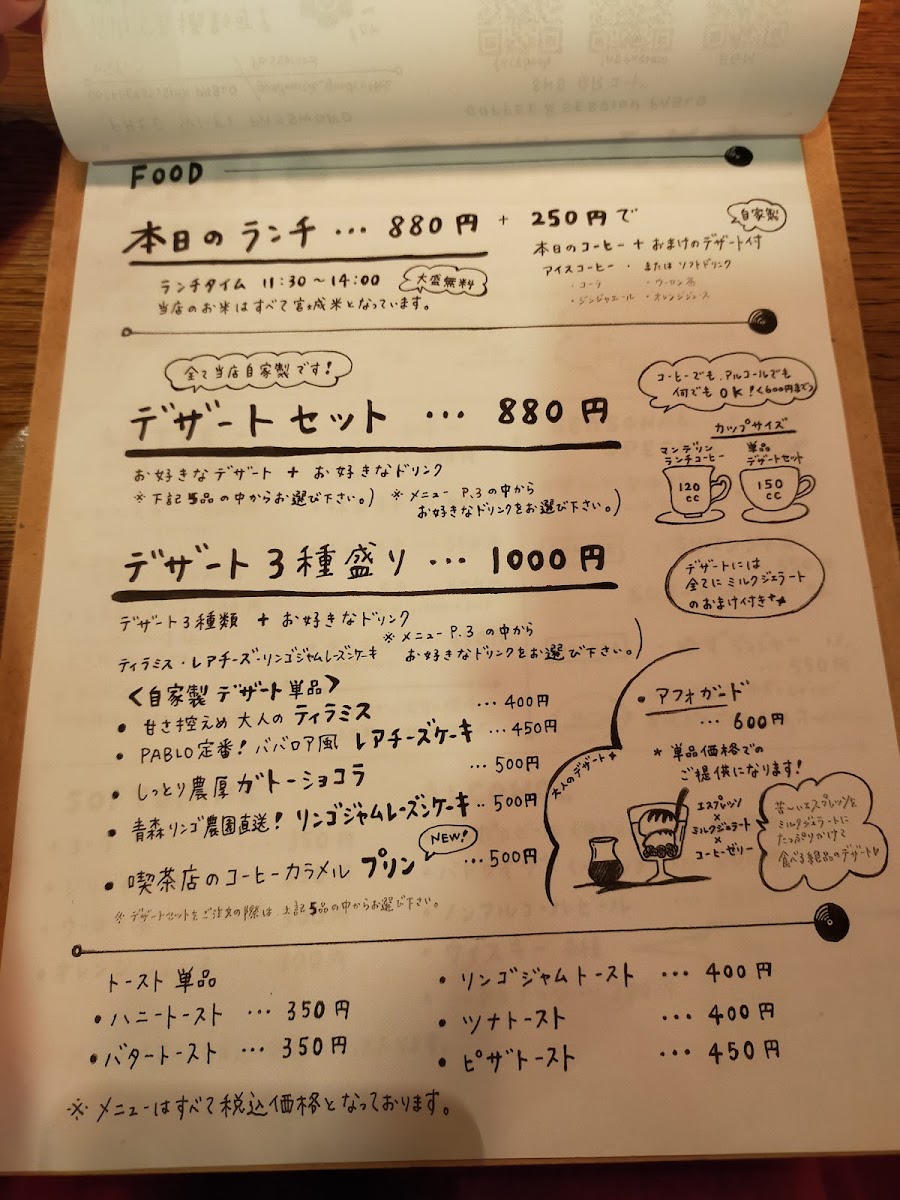 FOOD
本日のランチ … 880円 + 250円で
自家製
本日のコーヒー + おまけのデザート付
アイスコーヒー ・ または ソフトドリンク
・コーラ ・ウーロン茶
・ジンジャエール ・オレンジジュース
ランチタイム 11:30〜14:00
大盛無料
当店のお米はすべて宮城米となっています。
全て当店自家製です!
デザートセット … 880円
お好きなデザート + お好きなドリンク
※下記5品の中からお選び下さい。)
※メニュー P.3の中から
お好きなドリンクをお選び下さい。)
コーヒーでも、アルコールでも
何でもOK!<600円まで>
カップサイズ
マンデリン
ランチコーヒー
120
cc
単品
デザートセット
150
cc
デザート3種盛り … 1000円
デザート3種類 + お好きなドリンク
※メニューP.3の中から
お好きなドリンクをお選び下さい。)
ティラミス・レアチーズ・リンゴジャムレーズンケーキ
デザートには
全てにミルクジェラート
のおまけ付き
<自家製 デザート単品>
• 甘さ控えめ 大人の ティラミス … 400円
• PABLO定番! ババロア風 レアチーズケーキ … 450円
• しっとり濃厚 ガトーショコラ … 500円
• 青森リンゴ農園直送! リンゴジャムレーズンケーキ ‥ 500円
NEW!
• 喫茶店のコーヒーカラメル プリン … 500円
※デザートセットをご注文の際は、上記5品の中からお選び下さい。
大人のデザート
• アフォガード
… 600円
* 単品価格での
ご提供になります!
エスプレッソ
×
ミルクジェラート
×
コーヒーゼリー
苦〜いエスプレッソを
ミルクジェラートに
たっぷりかけて
食べる絶品のデザート
トースト 単品
• ハニートースト … 350円
• バタートースト … 350円
• リンゴジャムトースト … 400円
• ツナトースト … 400円
• ピザトースト … 450円
※メニューはすべて税込価格となっております。